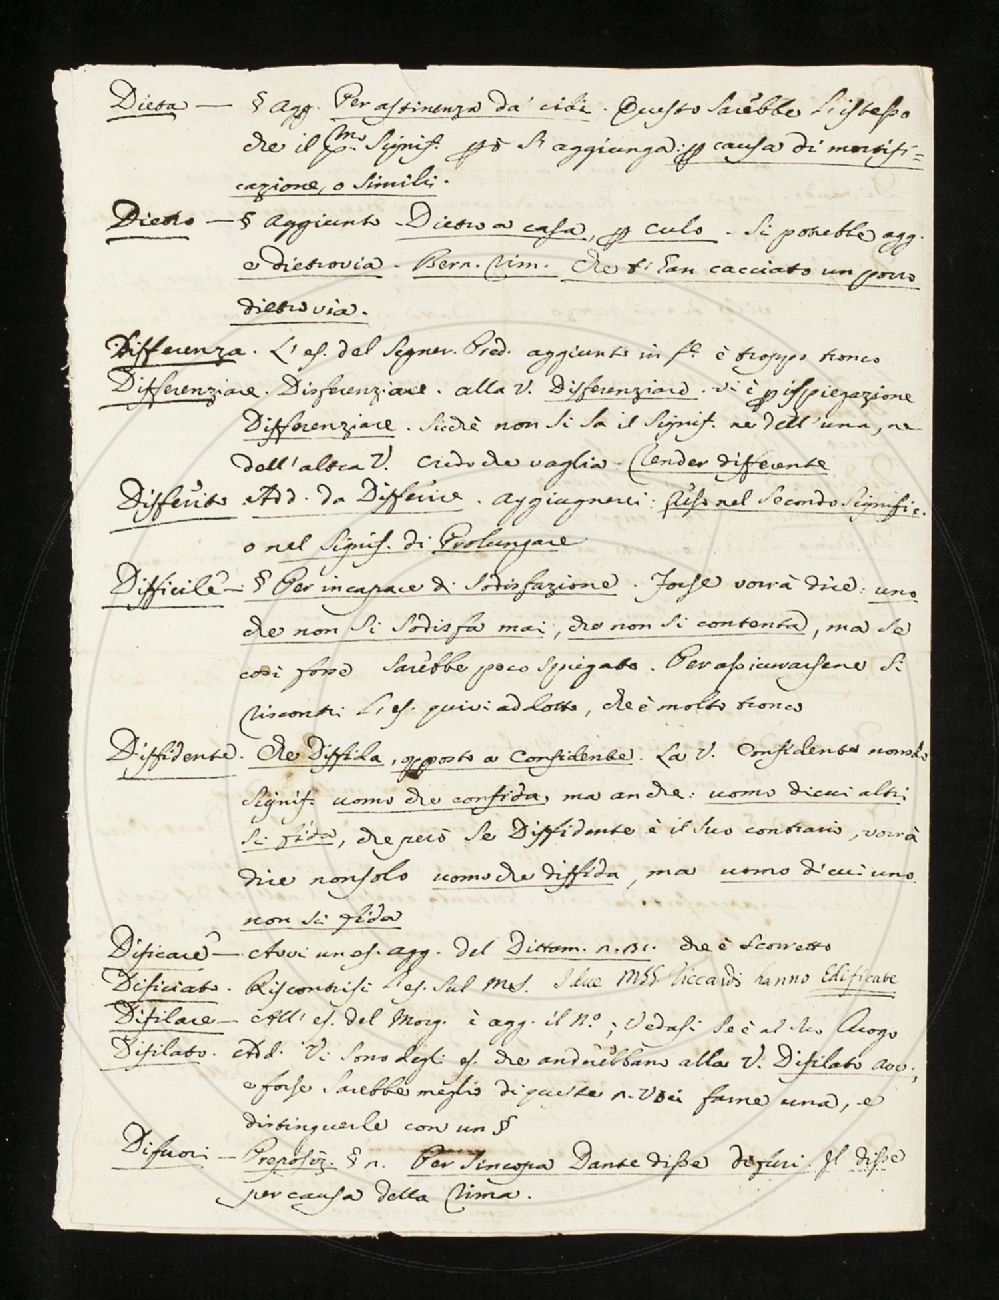 Dieta — § agg. Per astinenza da' cibi. Questo sarebbe l'istesso
che il pmo signif. però si aggiunga: p causa di mortifi=
cazione, o simili.
Dietro — § Aggiunto Dietro a casa, p culo. Si potrebbe agg.
e dietrovia. Bern. Rim. che t'han cacciato un porro
dietrovia.
Differenza. L'es. del Segner. Pred. aggiunto in fe. è troppo tronco
Differenziare. Disferenziare. alla V. Disferenziare. vi è p ispiegazione
Differenziare. sicchè non si sa il signif. ne dell'una, ne
dell'altra V. credo che vaglia. Render differente
Differito Add. da Differire. aggiugnerei: preso nel secondo signific.
o nel signif. di Prolungare
Difficile — § Per incapace di sodisfazione. Forse vorrà dire: uno
che non si sodisfa mai, che non si contenta, ma se
così fosse sarebbe poco spiegato. Per assicurarsene si
riscontri l'es. quivi addotto, che è molto tronco
Diffidente. che Diffida, opposto a Confidente. La V. Confidente non solo
signif. uomo che confida, ma anche: uomo di cui altri
si fida, che però se Diffidente è il suo contrario, vorrà
dire non solo uomo che diffida, ma uomo di cui uno
non si fida
Dificare — Avvi un es. agg. del Dittam. n. 131. che è scorretto
Dificiato. Riscontrisi l'es. sul MS. I due MSS. Riccardi hanno Edificate
Difilare — All'es. del Morg. è agg. il No.; Vedasi se è al suo luogo
Difilato. Add. Vi sono degli es. che andrebbano alla V. Difilato avv.,
e forse sarebbe meglio di queste n. Voci farne una, e
distinguerle con un §
Difuori — Preposiz. § n. Per sincopa Dante disse difuri. Il disse
per causa della Rima.